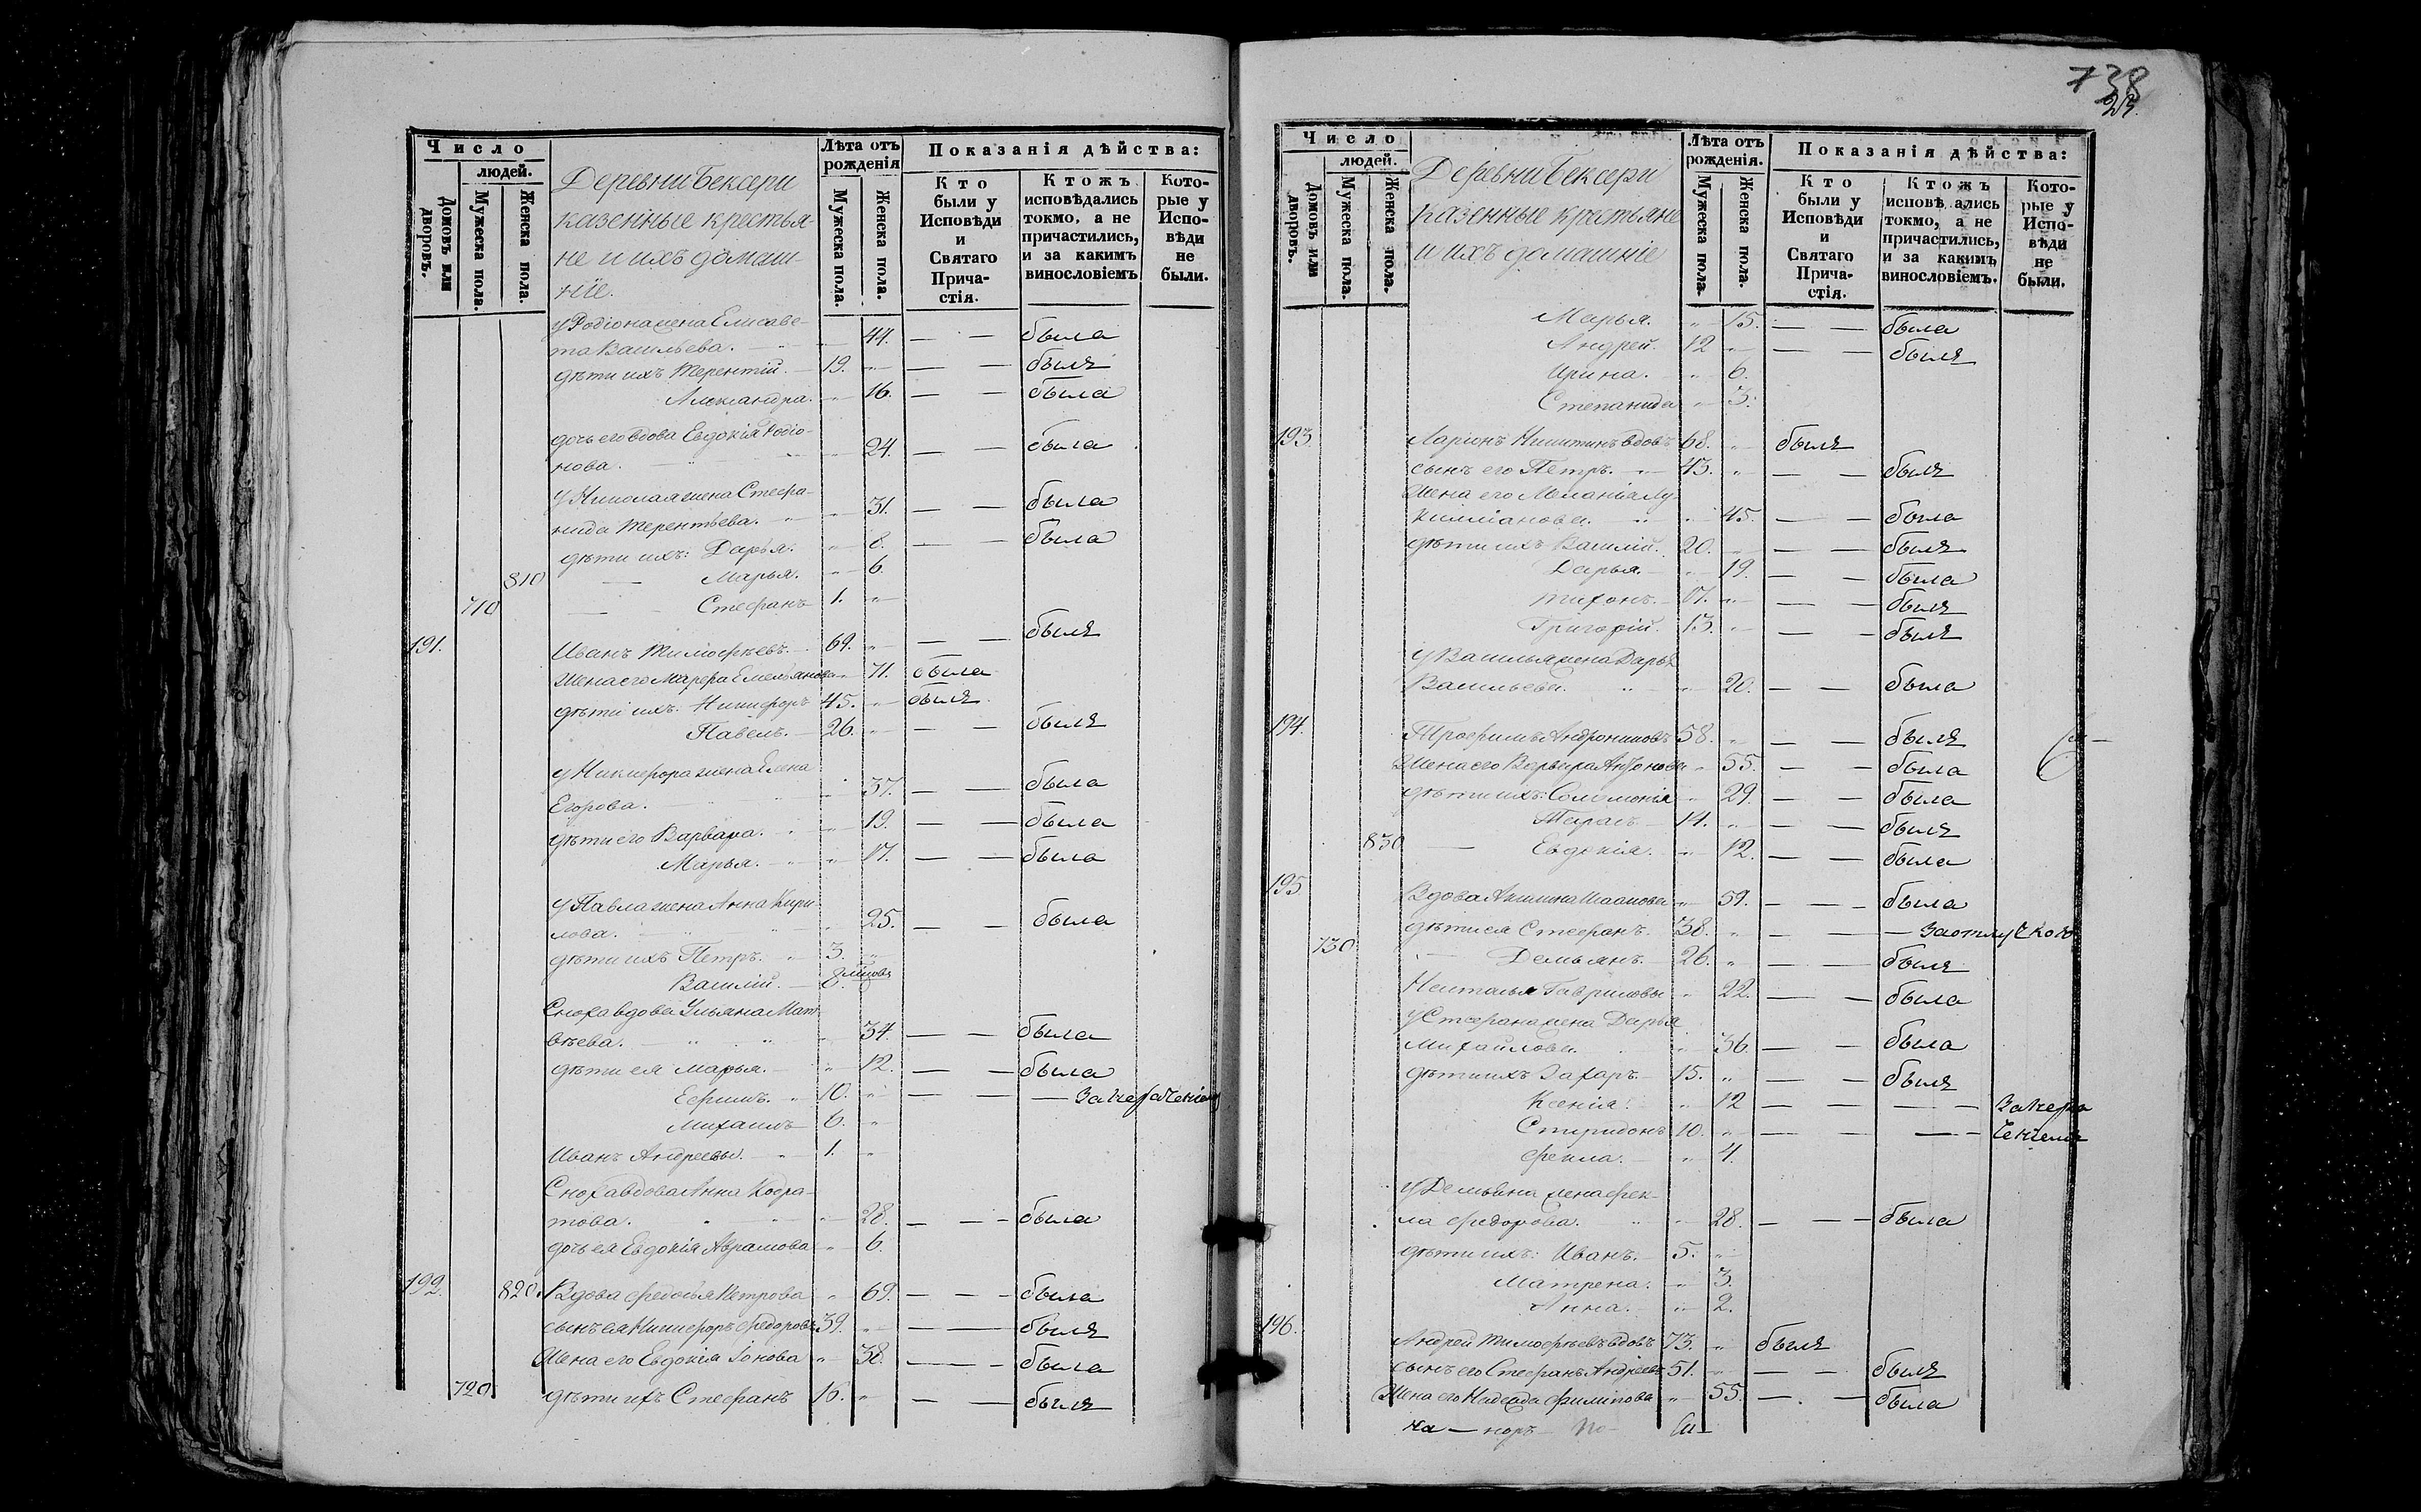 738
23.
Число
людей.
Домовъ или дворовъ.
Мужеска пола.
Женска пола.
Деревни Бексери
казенные крестья-
не и ихъ домаш-
ніе.
Лѣта отъ рожденія
Мужеска пола.
Женска пола.
Показанія дѣйства:
Кто были у Исповѣди и Святаго Прича-стія.
Ктожъ исповѣдались токмо, а не причастились, и за какимъ винословіемъ
Кото-рые у Испо-вѣди не были.
у Родіона жена Елисаве-
та Васильева. 44. была
дѣти ихъ Терентій. 19. былъ
Александра. 16. была
дочь его вдова Евдокія Родіо-
нова. 24. была
у Николая жена Стефа-
нида Терентьева. 31. была
дѣти ихъ: Дарья. 8. была
810 Марья. 6.
710 Стефанъ 1.
191. Иванъ Тимофѣевъ. 69. былъ
Жена его Марфа Емельянова 71. была
дѣти ихъ: Никифоръ 45. былъ
Павелъ. 26. былъ
у Никифора жена Елена
Егорова. 37. была
дѣти его Варвара. 19. была
Марья. 17. была
у Павла жена Анна Кири-
лова. 25. была
дѣти ихъ Петръ. 3.
Василій. 8.
Сноха вдова Ульяна Мат-
вѣева. 34. была
дѣти ея Марья. 12. была
Ефимъ. 10.
Михаилъ 6.
Иванъ Андреевы. 1.
Сноха вдова Анна Кодра-
това. 28. была
дочь ея Евдокія Аврамова 6.
192. 820. Вдова Федосья Петрова 69. была
сынъ ея Никифоръ Федоровъ 39. былъ
Жена его Евдокія Іонова 38. была
720 дѣти ихъ Стефанъ 16. былъ
Число
людей.
Домовъ или дворовъ.
Мужеска пола.
Женска пола.
Деревни Бексери
Казенные крестьяне
и ихъ домашніе
Лѣта отъ рожденія.
Мужеска пола.
Женска пола.
Показанія дѣйства:
Кто были у Исповѣди и Святаго Прича-стія.
Ктожъ исповѣ ались токмо, а не причастились, и за какимъ винословіемъ.
Кото-рые у Испо-вѣди не были.
Марья. 15. была
Андрей. 12 былъ
Ирина. 6.
Степанида 3.
193. Ларіонъ Никитинъ вдовъ 68. былъ
сынъ его Петръ. 43. былъ
Жена его Меланія Лу-
киліанова. 45. была
дѣти ихъ Василій. 20. былъ
Дарья. 19. была
Тихонъ. былъ
Григорій. 13. былъ
у Василья жена Дарья
Васильева. 20. была
194. Трофимъ Андрониковъ 58. былъ
Жена его Варвара Антонова 55. была
дѣти ихъ: Соломонія 29. была
Тарасъ 14. былъ
830 Евдокія. 12. была
195 Вдова Акилина Исакова 59. была
дѣти ея Стефанъ. 38. За отлучкою
730 Демьянъ. 26. былъ
Наталья Гавриловы 22. была
у Стефана жена Дарья
Михайлова. 36. была
дѣти ихъ Захаръ. 15. былъ
Ксенія. 12
Спиридонъ 10.
Фекла. 4.
у Демьяна жена Фек-
ла Федорова. 28. была
дѣти ихъ: Иванъ. 5.
Матрена. 3.
Анна. 2.
196. Андрей Тимофѣевъ вдовъ 73. былъ
сынъ его Стефанъ Андреевъ 51. былъ
Жена его Надежда Филипова 55. была